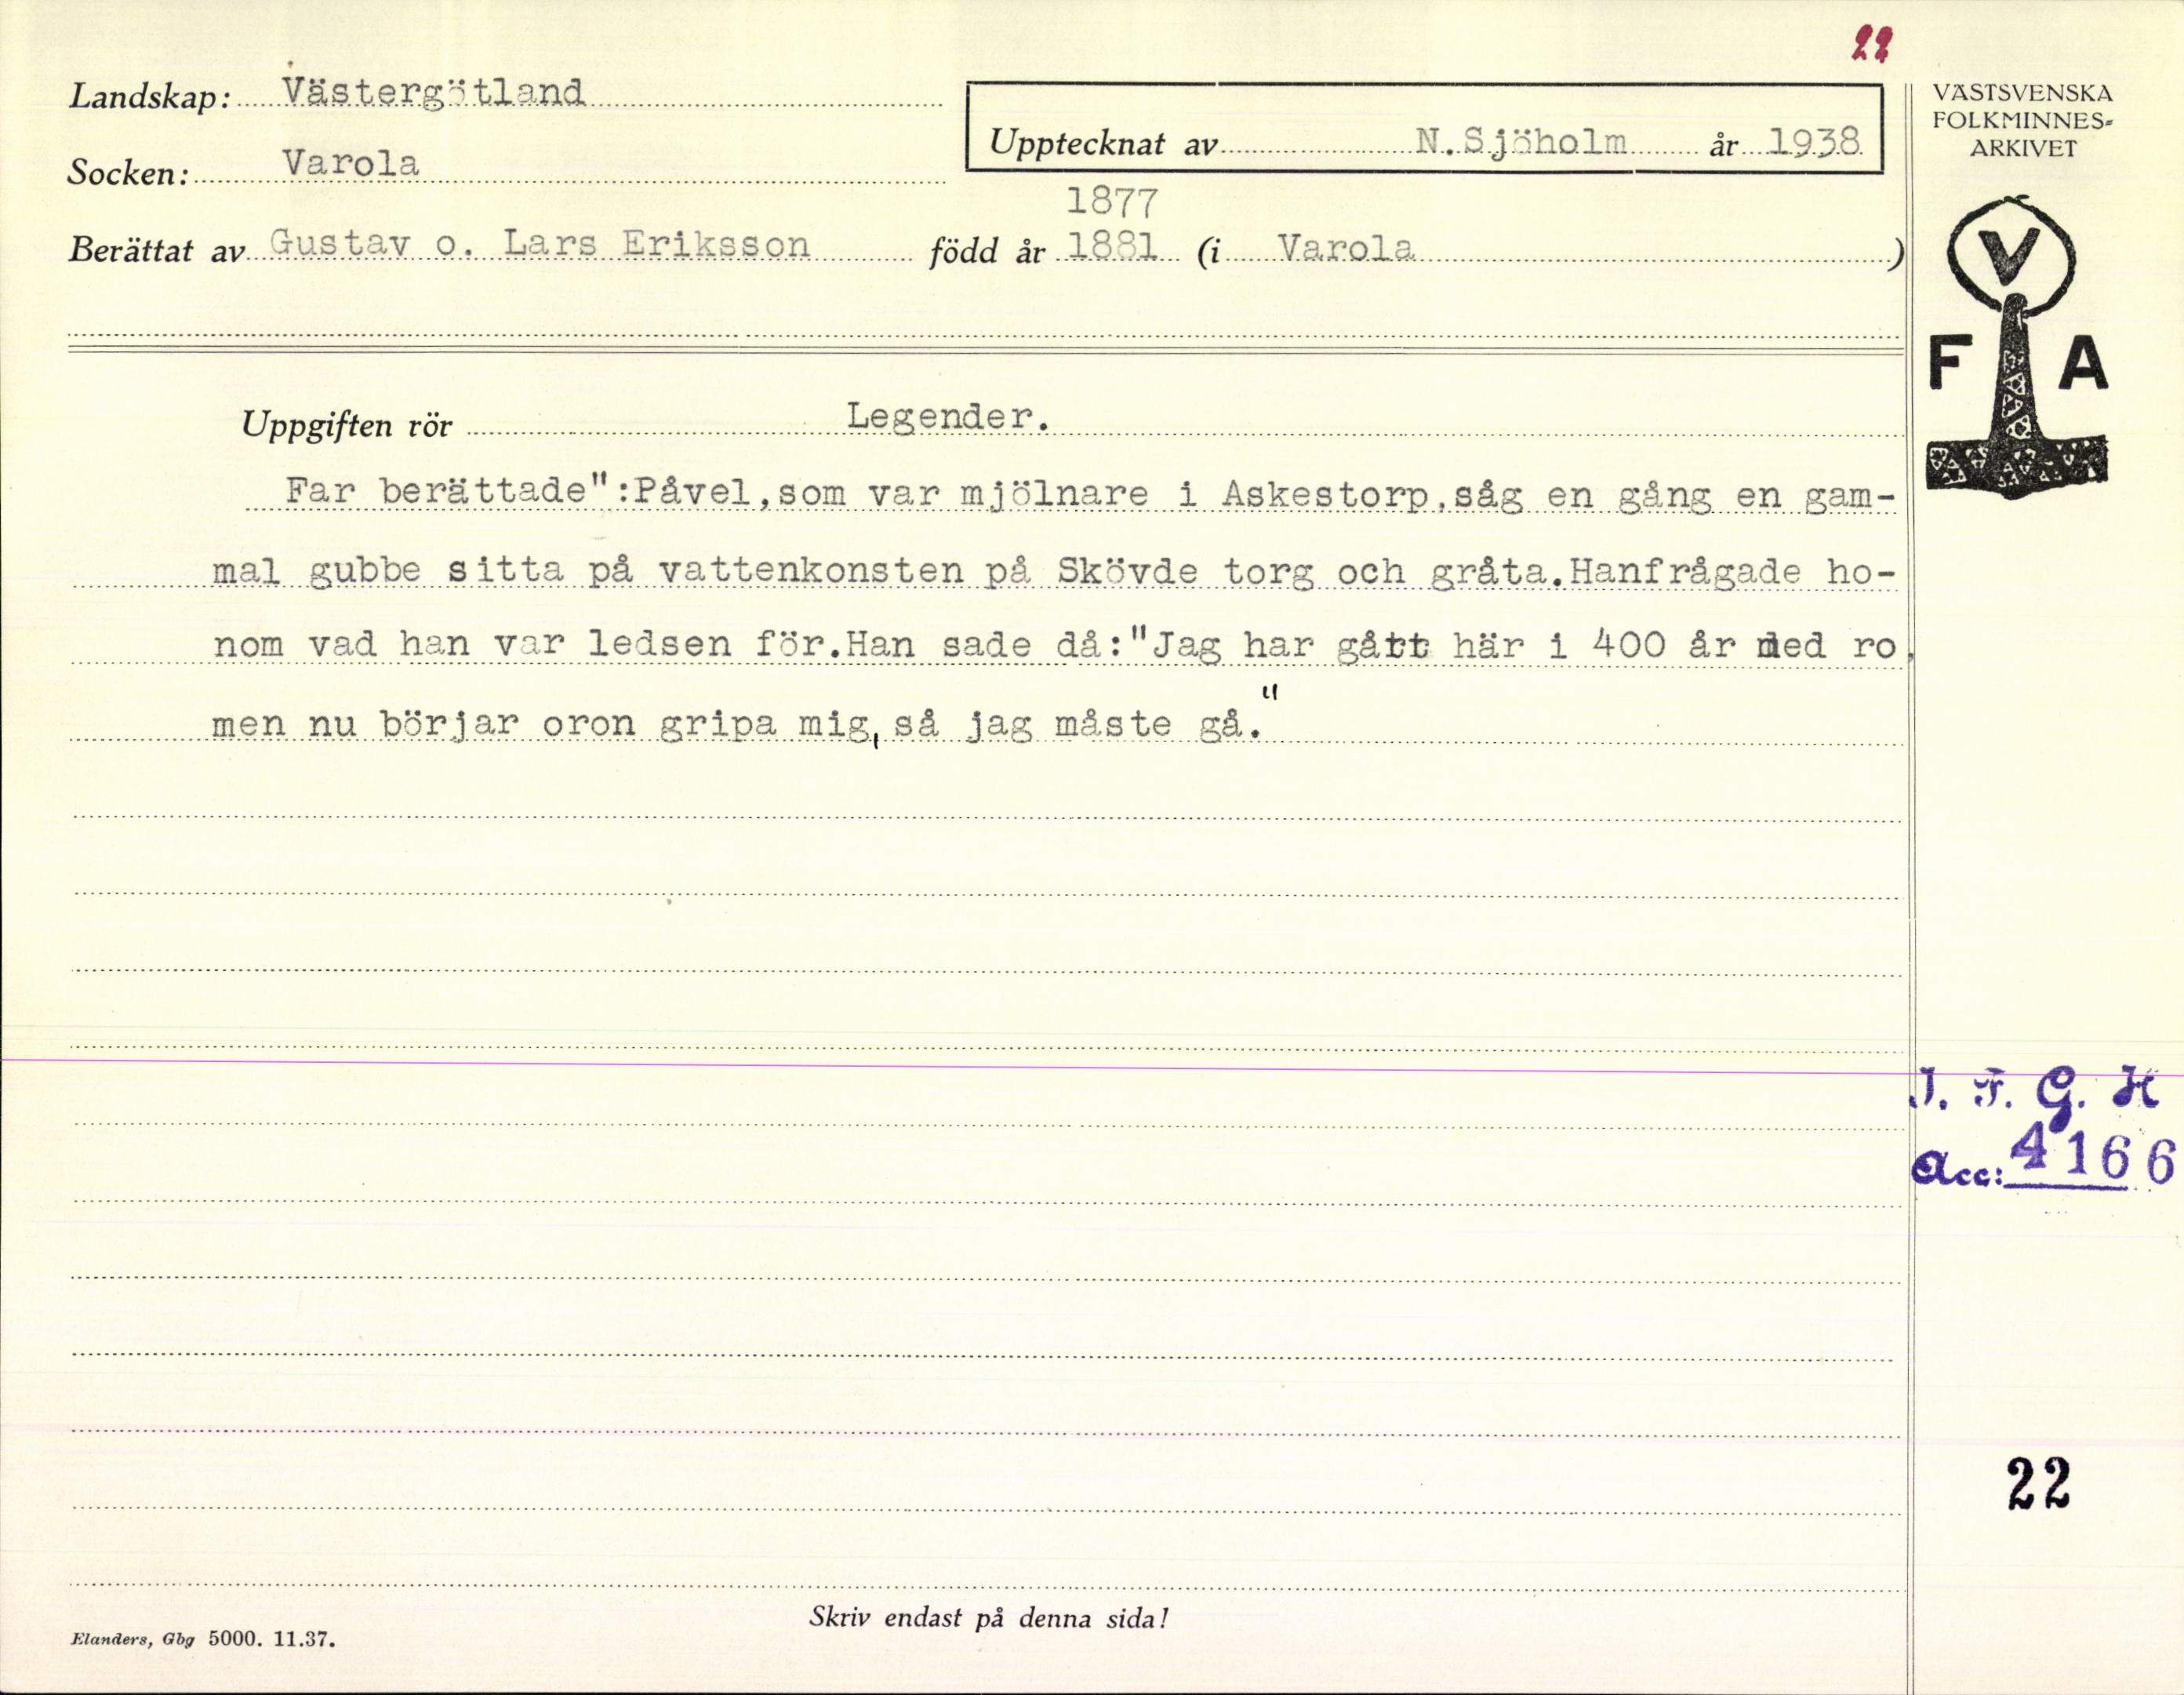 22
Landskap: Västergötland
Upptecknat av N.Sjöholm år 1938
Socken: Varola
1877
Berättat av Gustav o. Lars Eriksson född år 1881 (i Varola )
Uppgiften rör Legender.
Far berättade":Påvel,som var mjölnare i Askestorp,såg en gång en gam-
mal gubbe sitta på vattenkonsten på Skövde torg och gråta.Hanfrågade ho-
nom vad han var ledsen för.Han sade då:"Jag har gått här i 400 år med ro,
men nu börjar oron gripa mig, så jag måste gå."
Skriv endast på denna sida!
Elanders, Gbg 5000. 11.37.
VÄSTSVENSKA
FOLKMINNES-
ARKIVET
V
F A
I. F. G. H
Acc: 4166
22